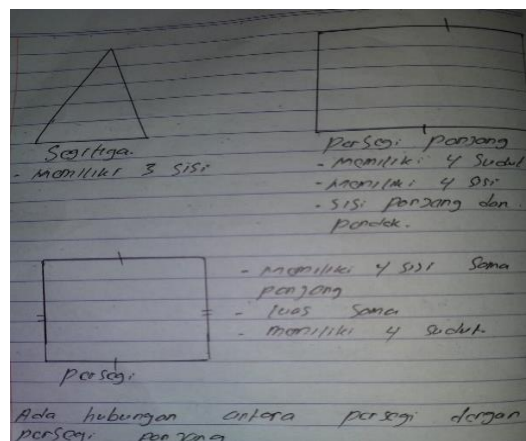 Segitiga.
- Memiliki 3 sisi
persegi panjang
- Memiliki 4 sudut
- Memiliki 4 sisi
- sisi panjang dan
pendek.
- Memiliki 4 sisi sama
panjang
- luas sama
- memiliki 4 sudut.
persegi
Ada hubungan antara persegi dengan
persegi panjang